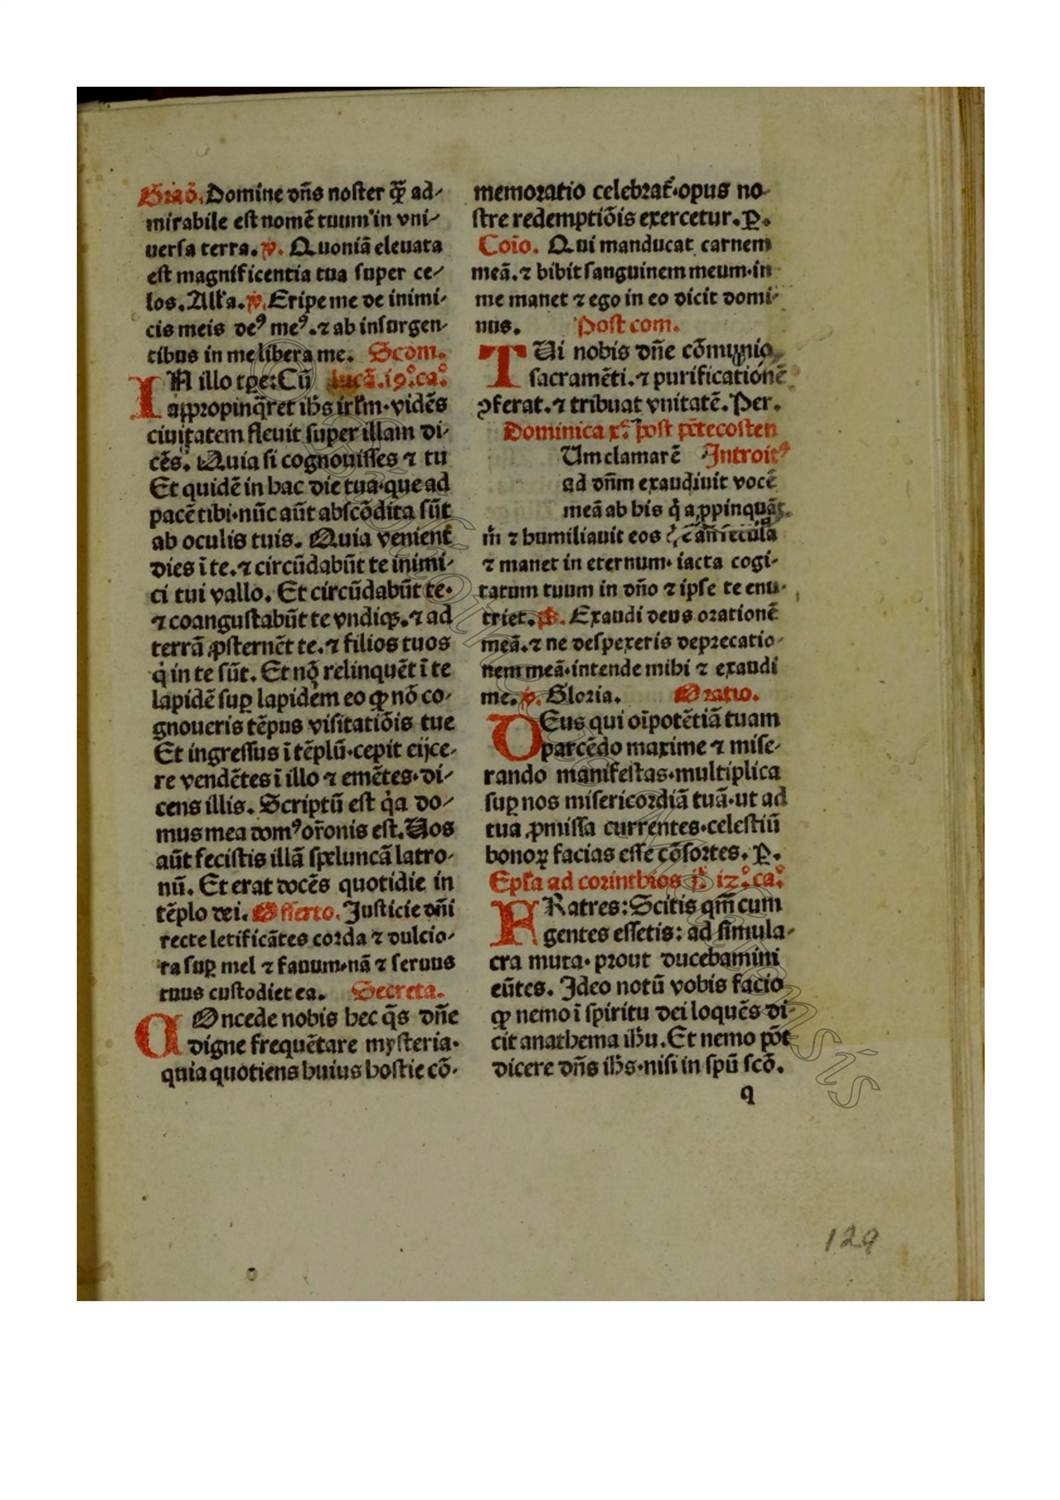 Gradͦ. Domine dn̄s noſter qꝫ̄ ad⸗
mirabile eſt nomē tuum in vni⸗
uerſa terra. ℣. Quoniā eleuata
eſt magnificentia tua ſuper ce⸗
los. All'a. ℣. Eripe me de inimi⸗
cis meis deꝰ meꝰ. ⁊ ab inſurgen⸗
tibus in me libera me. Scḋm.
IN illo tꝑe: Cū lucā. 19.ͦ ca.ͦ
appropinq̄ret ih̄s irl'm· vidēs
ciuitatem fleuit ſuper illam di⸗
cēs. Quia ſi cognouiſſes ⁊ tu
Et quidē in hac die tua· que ad
pacē tibi· nūc aūt abſcōdita ſūt
ab oculis tuis. Quia venient̄
dies ī te. ⁊ circūdabūt te inimi⸗
ci tui vallo. Et circūdabūt te·
⁊ coanguſtabūt te vndiqꝫ. ⁊ ad
terrā ꝓſternēt te. ⁊ filios tuos
q̇ in te ſūt. Et nō relinquēt ī te
lapidē ſuꝑ lapidem eo ꝙ nō co⸗
gnoueris tēpus viſitatiōis tue
Et ingreſſus ī tēplū· cepit eijce⸗
re vendētes ī illo ⁊ emētes· di⸗
cens illis. Scriptū eſt q̇a do⸗
mus mea domꝰ or̄onis eſt. Uos
aūt feciſtis illā ſpeluncā latro⸗
nū. Et erat docēs quotidie in
tēplo dei. Offerto. Juſticie dn̄i
recte letificātes corda ⁊ dulcio⸗
ra ſuꝑ mel ⁊ fauum· nā ⁊ ſeruus
tuus cuſtodiet ea. Secreta.
COncede nobis hec q̄s dn̄e
digne frequētare myſteria·
quia quotiens huius hoſtie cō⸗
memoratio celebrat̄· opus no⸗
ſtre redemptiōis exercetur. P.
Coīo. Qui manducat carnem
meā. ⁊ bibit ſanguinem meum· in
me manet ⁊ ego in eo dicit domi⸗
nus. Poſt com.
TUi nobis dn̄e cōmunio
ſacramēti. ⁊ purificationē
ꝯferat. ⁊ tribuat vnitatē. Per.
Dominica x.ͣ poſt pētecoſten
Um clamarē Introitꝰ
ad dn̄m exaudiuit vocē
meā ab his q̇ appinquāt
m̄ ⁊ humiliauit eos q̇ ē an̄ ſecula
⁊ manet in eternum· iacta cogi⸗
tatum tuum in dn̄o ⁊ ipſe te enu⸗
triet. ps. Exaudi deus orationē
meā. ⁊ ne deſpexeris deprecatio⸗
nem meā· intende mihi ⁊ exaudi
me. ℣. Gloria. Oratio.
DEus qui oīpotētiā tuam
parcēdo maxime ⁊ miſe⸗
rando manifeſtas· multiplica
ſuꝑ nos miſericordiā tuā· ut ad
tua ꝓmiſſa currentes· celeſtiū
bonoꝝ facias eſſe cōſortes. P.
Epl'a ad corinthios j.ͤ 12.ͦ ca.ͦ
FRatres: Scitis qm̄ cum
gentes eſſetis: ad ſimula⸗
cra muta· prout ducebamini
eūtes. Ideo notū vobis facio
ꝙ nemo ī ſpiritu dei loquēs di⸗
cit anathema ih̄u. Et nemo pōt
dicere dn̄s ih̄s· niſi in ſpū ſcō.
q
129